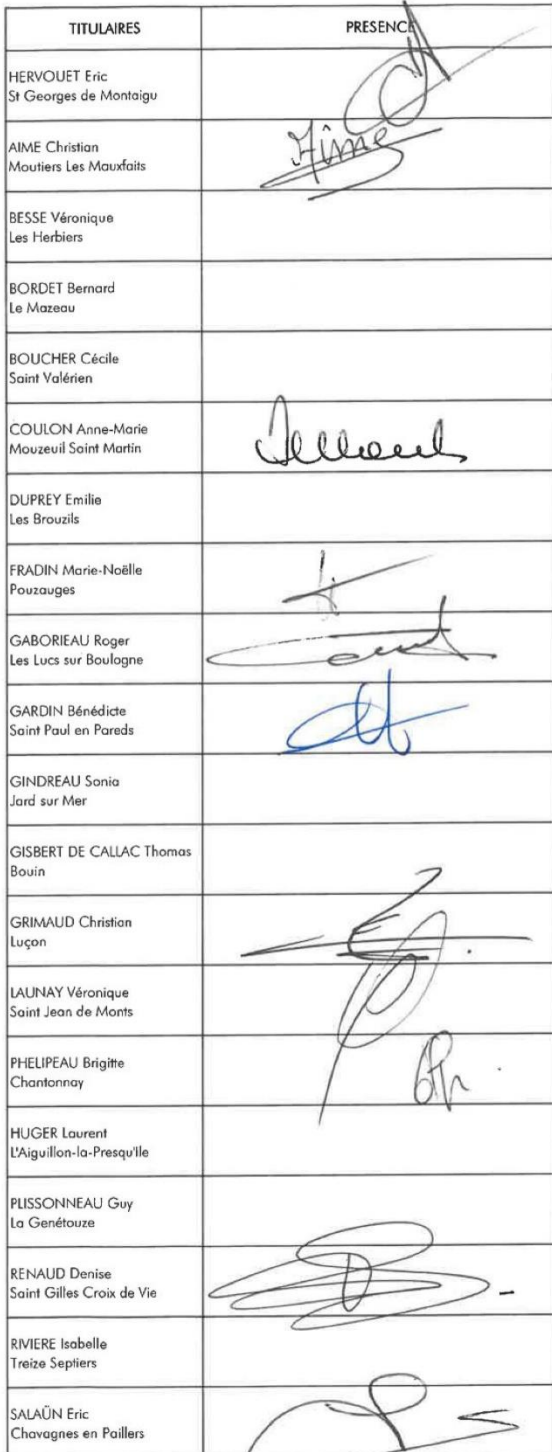 TITULAIRES PRESENCE
HERVOUET Eric
St Georges de Montaigu
AIME Christian
Moutiers Les Mauxfaits
Aimé
BESSE Véronique
Les Herbiers
BORDET Bernard
Le Mazeau
BOUCHER Cécile
Saint Valérien
COULON Anne-Marie
Mouzeuil Saint Martin
DUPREY Emilie
Les Brouzils
FRADIN Marie-Noëlle
Pouzauges
GABORIEAU Roger
Les Lucs sur Boulogne
GARDIN Bénédicte
Saint Paul en Pareds
GINDREAU Sonia
Jard sur Mer
GISBERT DE CALLAC Thomas
Bouin
GRIMAUD Christian
Luçon
LAUNAY Véronique
Saint Jean de Monts
PHELIPEAU Brigitte
Chantonnay
HUGER Laurent
L'Aiguillon-la-Presqu'Ile
PLISSONNEAU Guy
La Genétouze
RENAUD Denise
Saint Gilles Croix de Vie
RIVIERE Isabelle
Treize Septiers
SALAÜN Eric
Chavagnes en Paillers